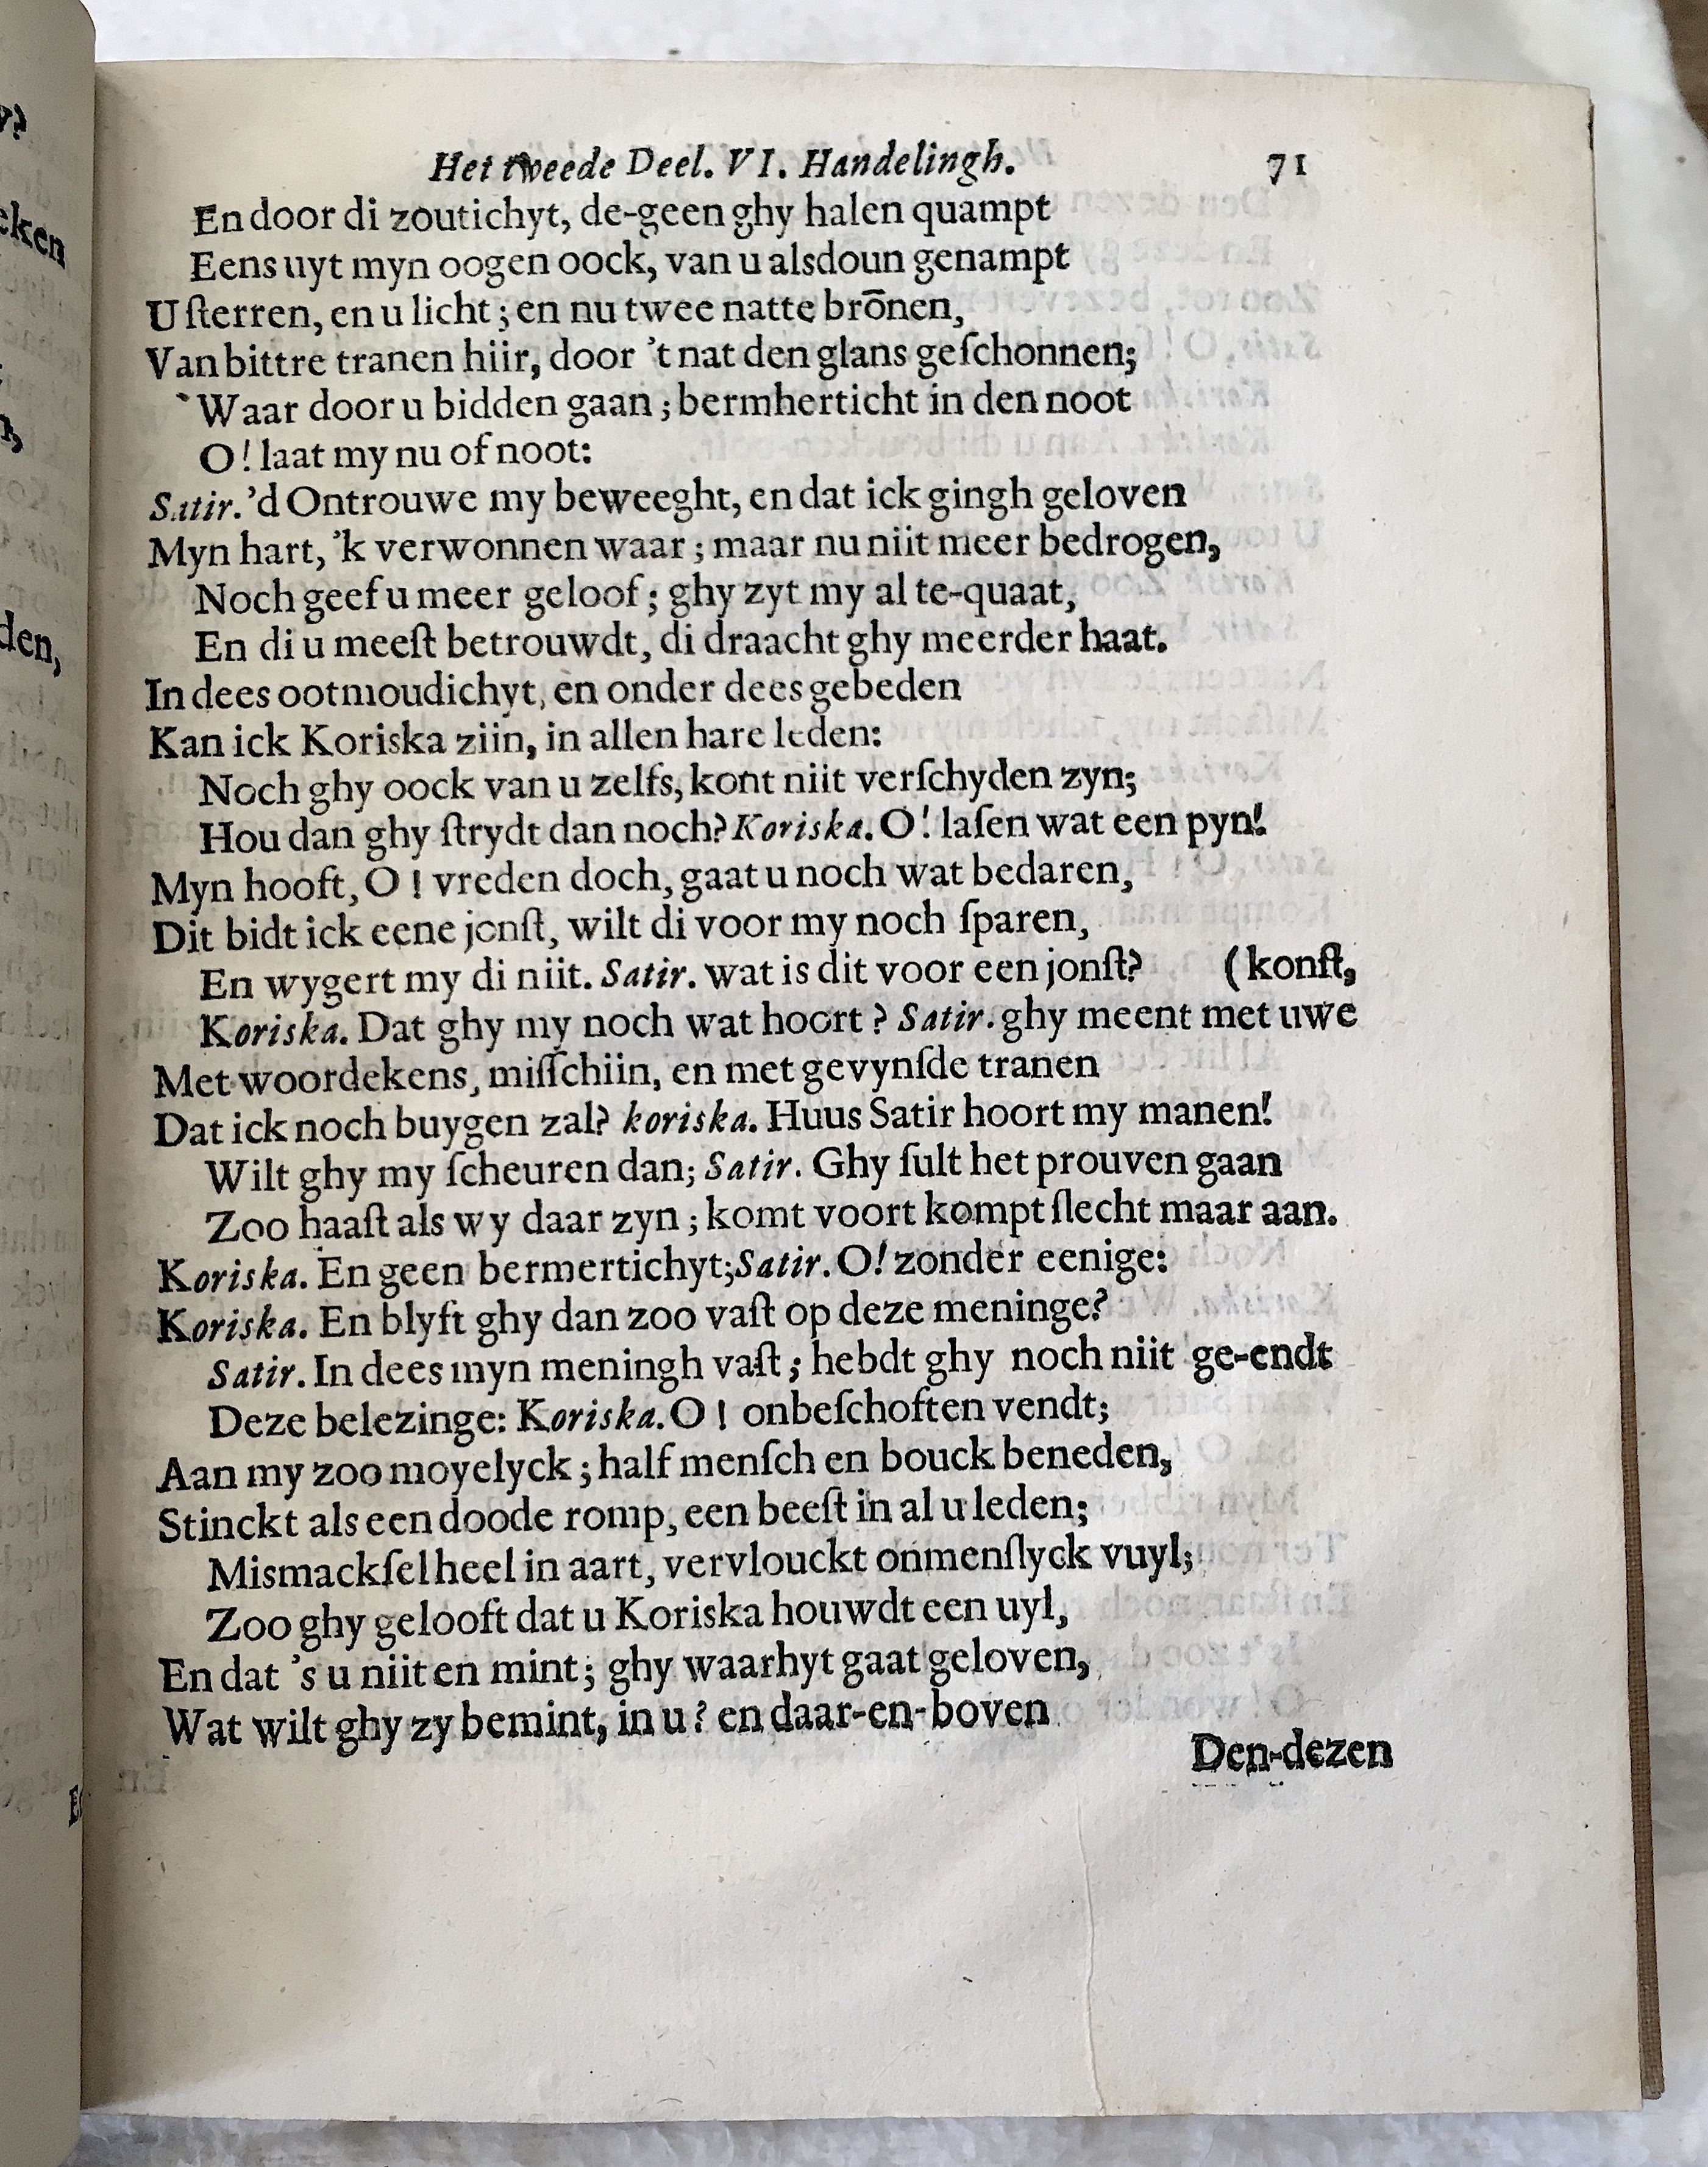 Het tweede Deel. VI. Handelingh. 71
En door di zoutichyt, de-geen ghy halen quampt
Eens uyt myn oogen oock, van u alsdoun genampt
U ſterren, en u licht; en nu twee natte brōnen,
Van bittre tranen hiir, door 't nat den glans geſchonnen;
Waar door u bidden gaan; bermherticht in den noot
O! laat my nu of noot:
Satir. 'd Ontrouwe my beweeght, en dat ick gingh geloven
Myn hart, 'k verwonnen waar; maar nu niit meer bedrogen,
Noch geef u meer geloof; ghy zyt my al te-quaat,
En di u meeſt betrouwdt, di draacht ghy meerder haat.
In dees ootmoudichyt, en onder dees gebeden
Kan ick Koriska ziin, in allen hare leden:
Noch ghy oock van u zelfs, kont niit verſchyden zyn;
Hou dan ghy ſtrydt dan noch? Koriska. O! laſen wat een pyn!
Myn hooft, O! vreden doch, gaat u noch wat bedaren,
Dit bidt ick eene jonſt, wilt di voor my noch ſparen,
En wygert my di niit. Satir. wat is dit voor een jonſt? (konſt,
Koriska. Dat ghy my noch wat hoort? Satir. ghy meent met uwe
Met woordekens, miſſchiin, en met gevynſde tranen
Dat ick noch buygen zal? koriska. Huus Satir hoort my manen!
Wilt ghy my ſcheuren dan; Satir. Ghy ſult het prouven gaan
Zoo haaſt als wy daar zyn; komt voort kompt ſlecht maar aan.
Koriska. En geen bermertichyt; Satir. O! zonder eenige:
Koriska. En blyft ghy dan zoo vaſt op deze meninge?
Satir. In dees myn meningh vaſt; hebdt ghy noch niit ge-endt
Deze belezinge: Koriska. O! onbeſchoften vendt;
Aan my zoo moyelyck; half menſch en bouck beneden,
Stinckt als een doode romp, een beeſt in al u leden;
Mismackſel heel in aart, vervlouckt onmenſlyck vuyl;
Zoo ghy gelooft dat u Koriska houwdt een uyl,
En dat 's u niit en mint; ghy waarhyt gaat geloven,
Wat wilt ghy zy bemint, in u? en daar-en-boven
Den-dezen